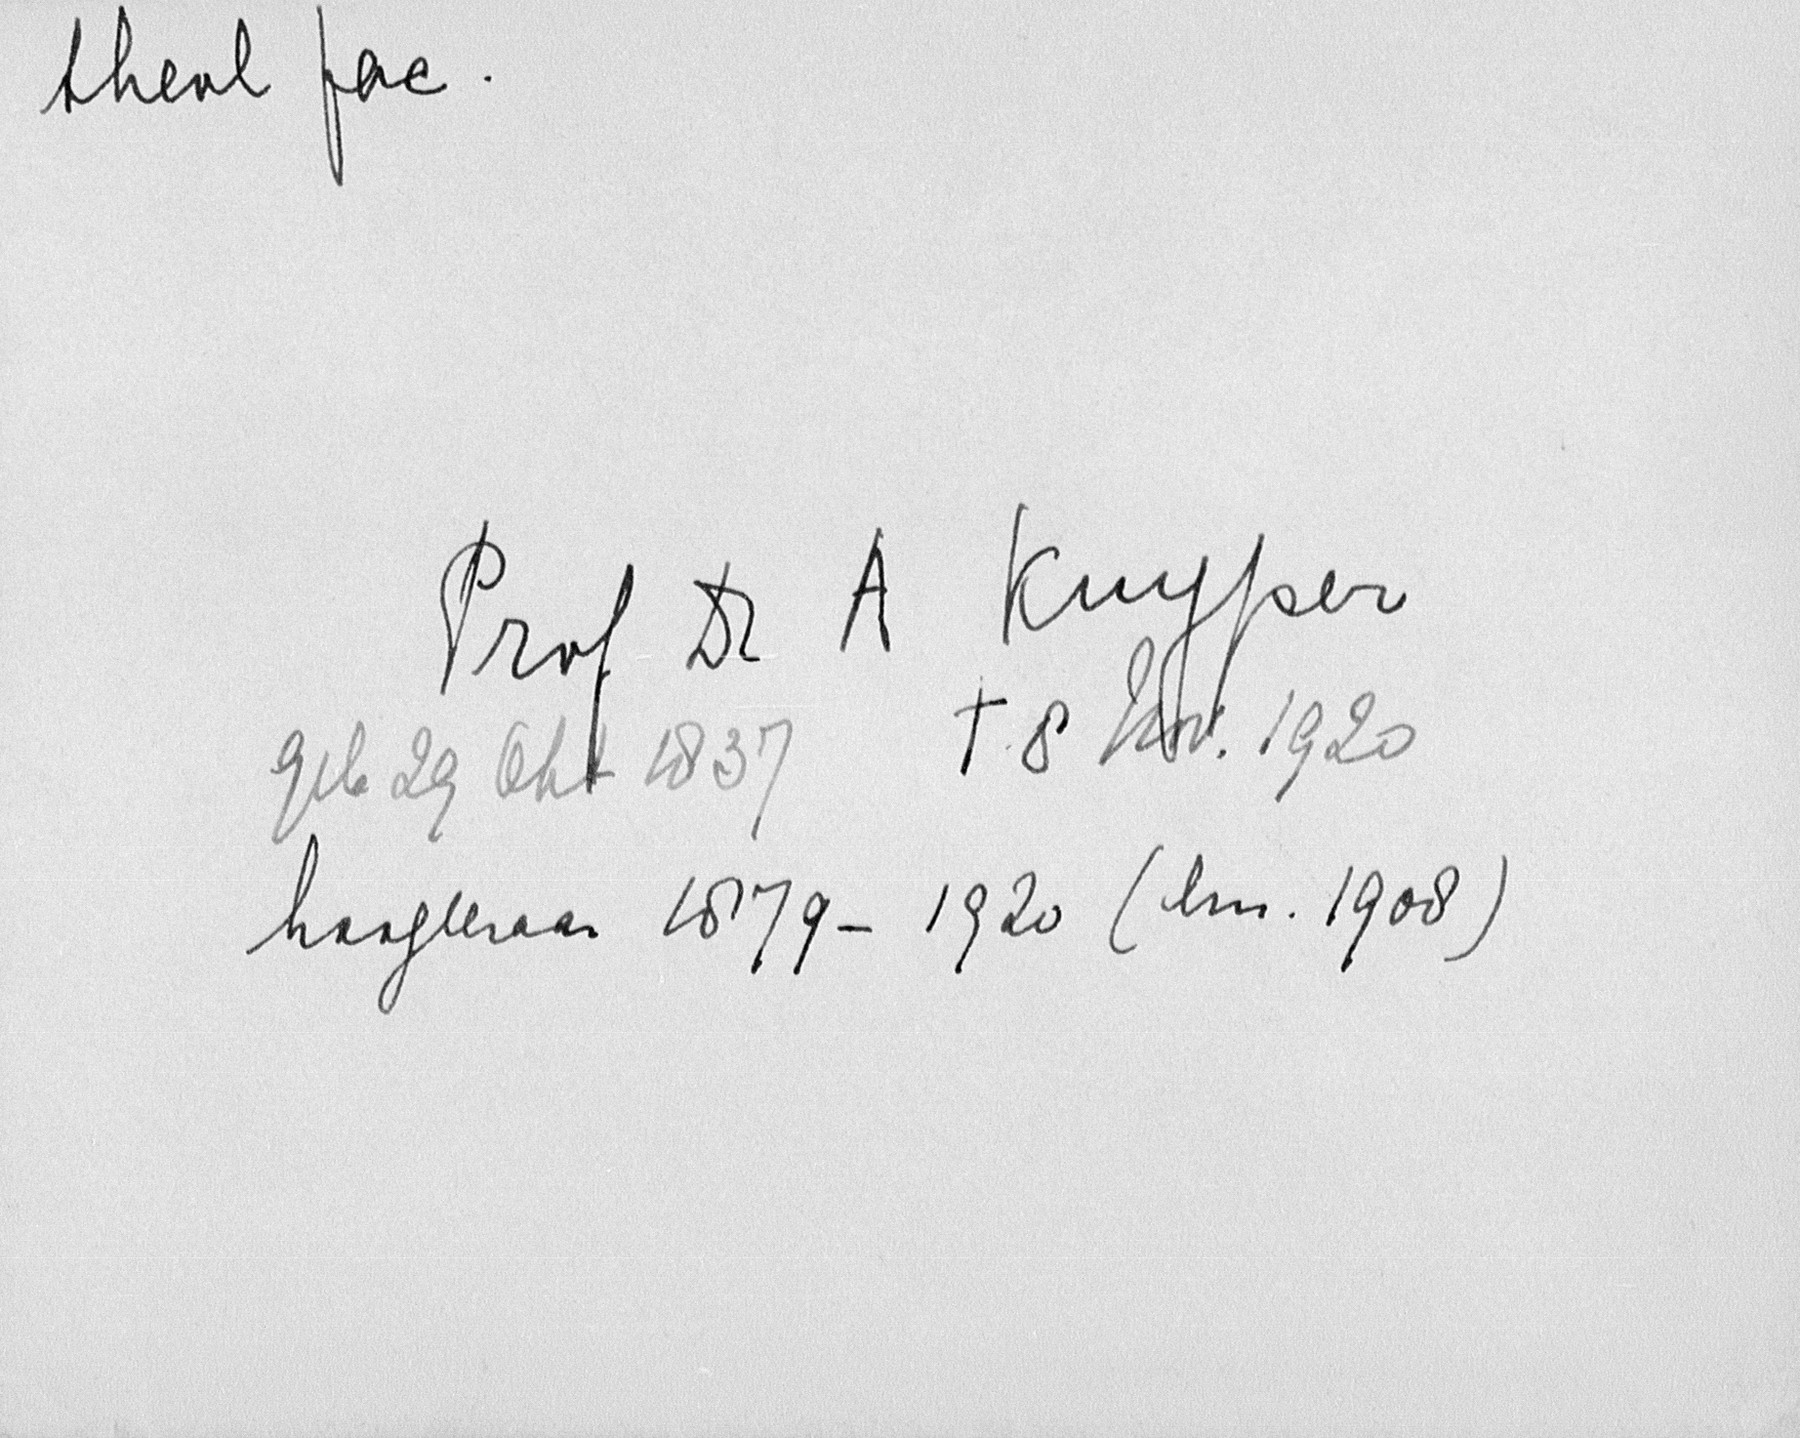 theol fac.
Prof Dr A Kuyper
geb 29 Okt 1837 † 8 Nov. 1920
hoogleraar 1879 – 1920 (em. 1908)